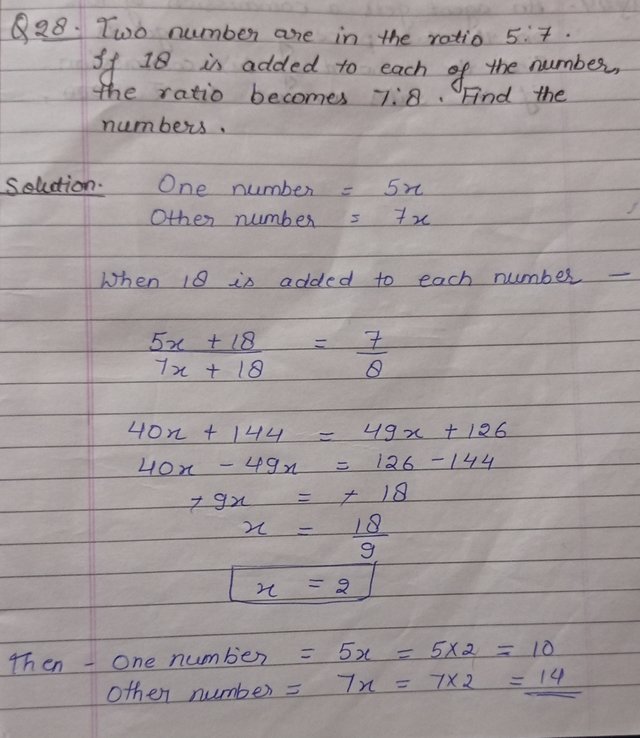 Q28. Two number are in the ratio 5:7.
If 18 is added to each of the number,
the ratio becomes 7:8. Find the
numbers.
Solution. One number = 5x
Other number = 7x
When 18 is added to each number -
5x + 18 / 7x + 18 = 7/8
40x + 144 = 49x + 126
40x - 49x = 126 - 144
+9x = + 18
x = 18/9
x = 2
Then - One number = 5x = 5x2 = 10
Other number = 7x = 7x2 = 14